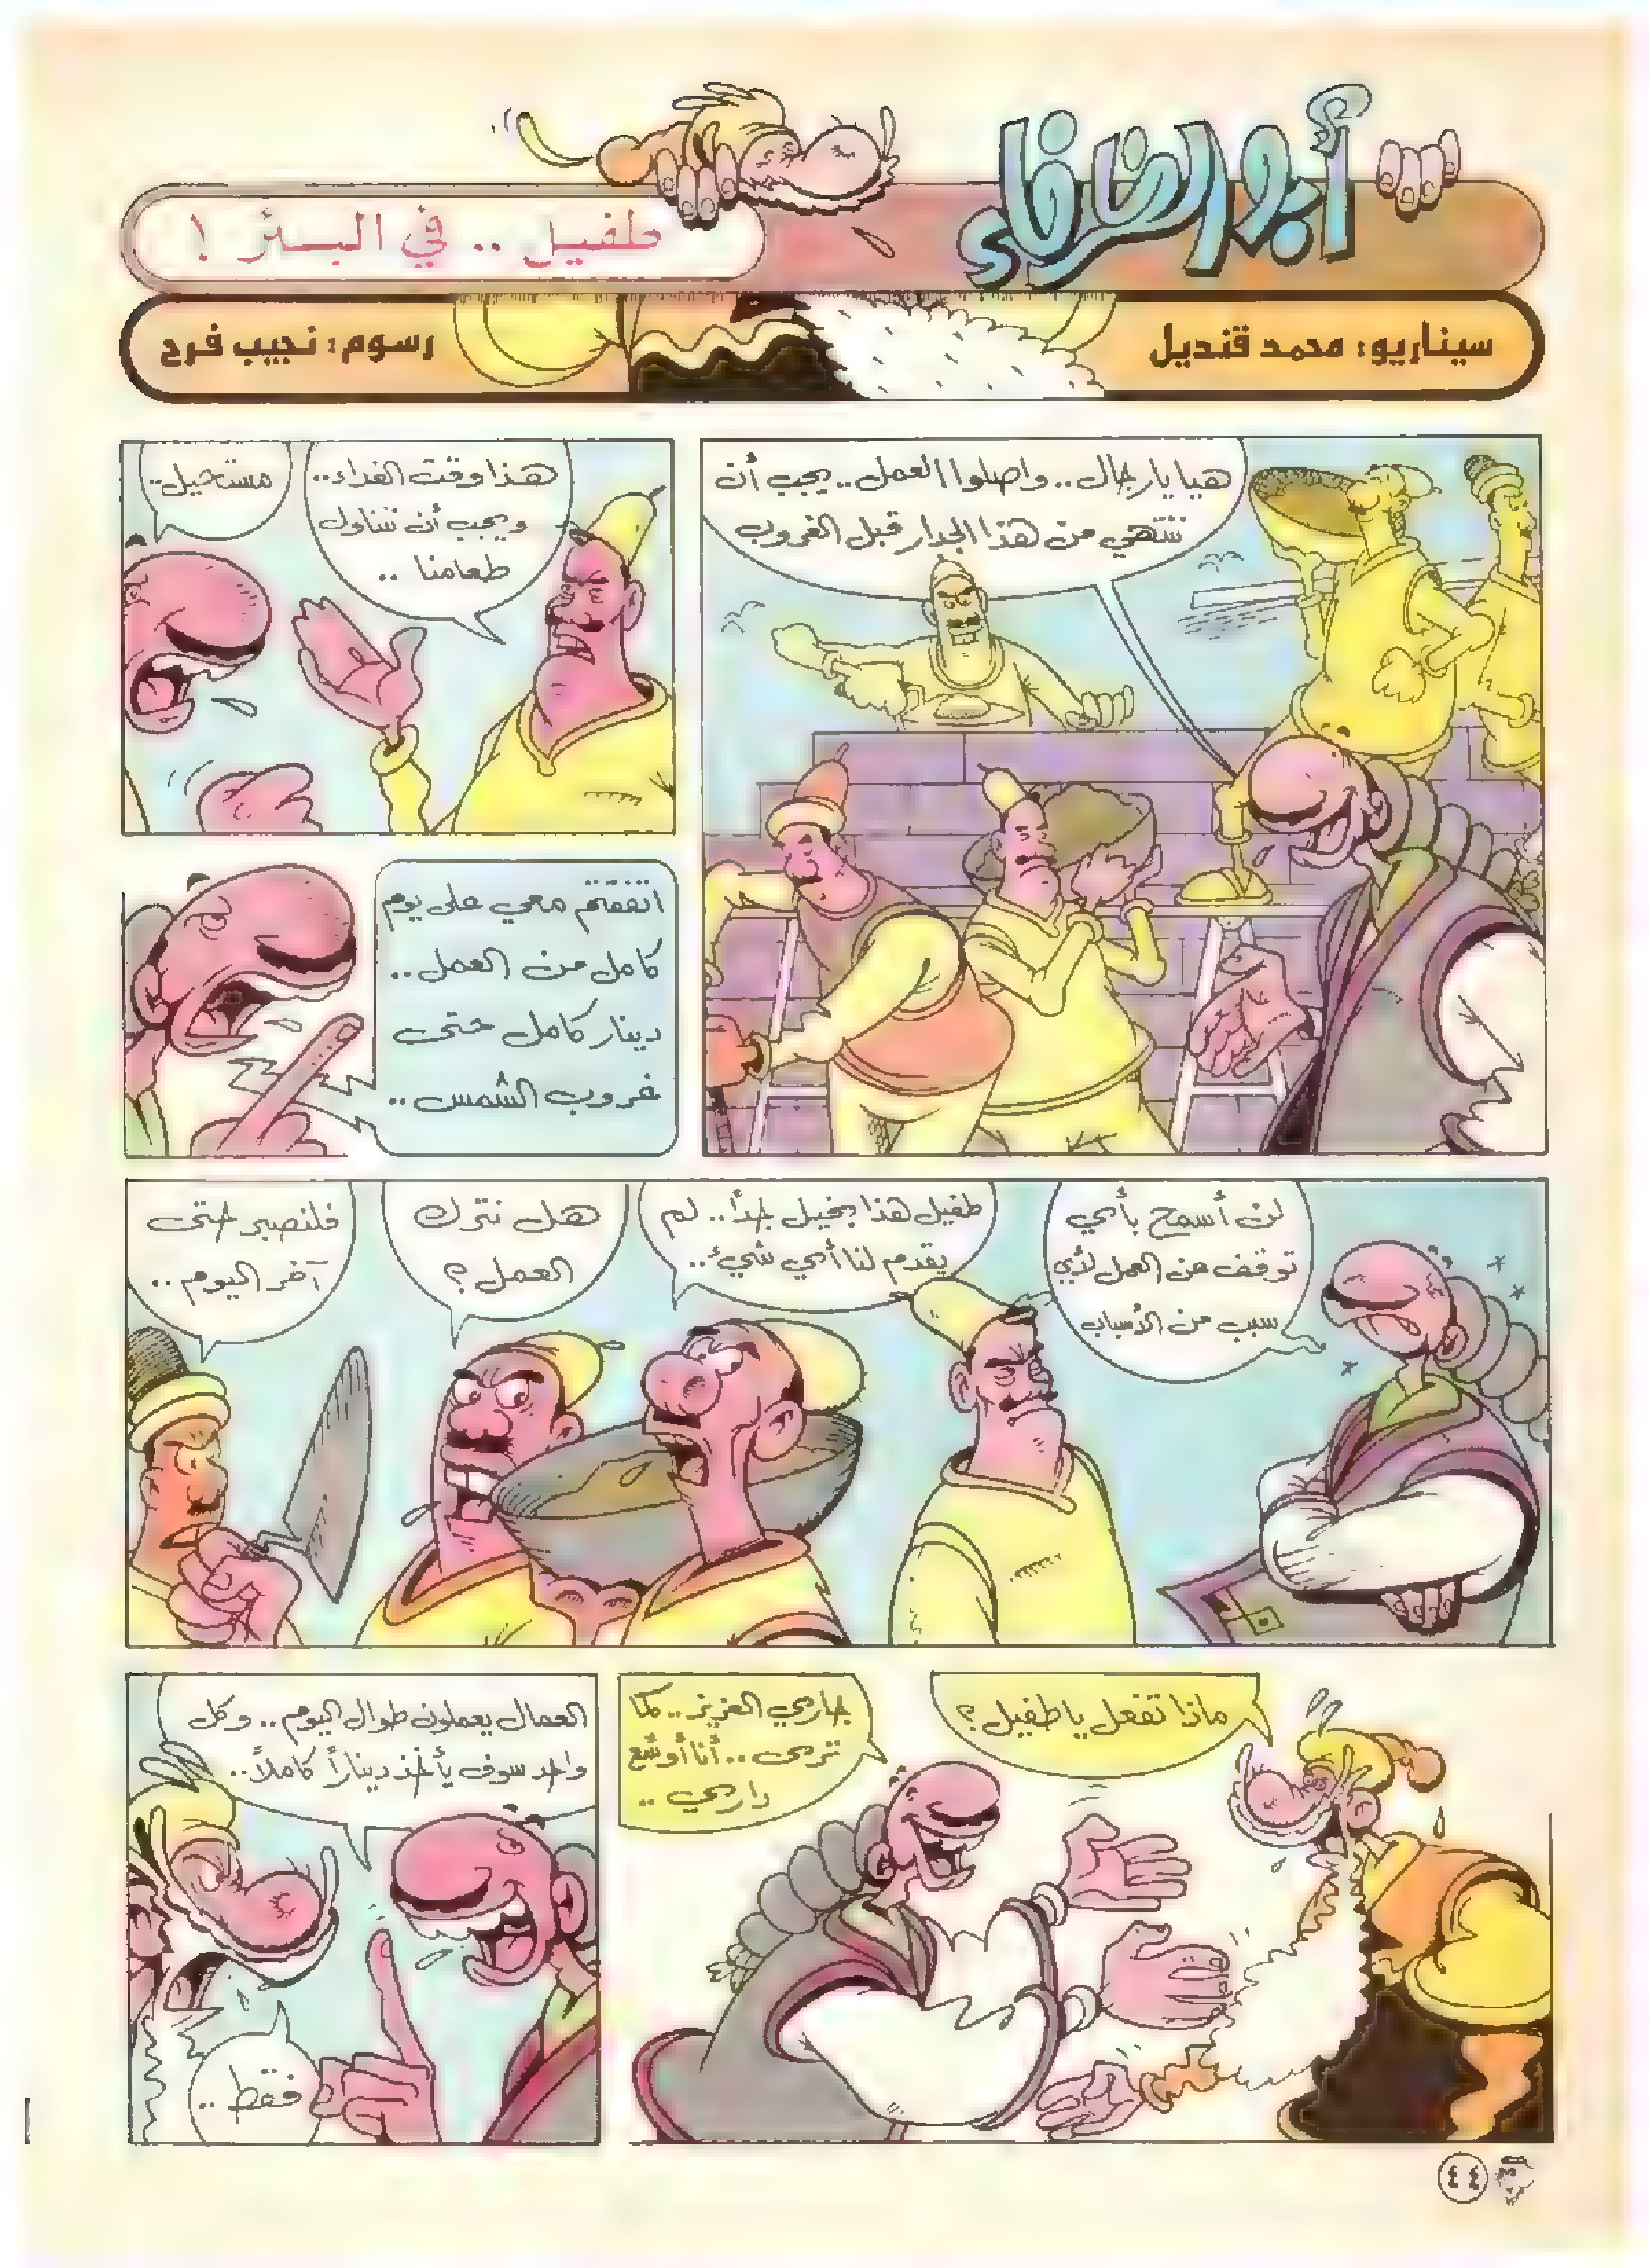 أبو الظرفاء
طفيل .. في البئر !
سيناريو: محمد قنديل
رسوم: نجيب فرح
هيا يا رجال .. واصلوا العمل .. يجب أن
ننتهي من هذا الجدار قبل الغروب
هذا وقت الغداء..
ويجب أن نتناول
طعامنا ..
مستحيل..
اتفقتم معي على يوم
كامل من العمل..
دينار كامل حتى
غروب الشمس ..
لن أسمح بأي
توقف عن العمل لأي
سبب من الأسباب
طفيل هذا بخيل جداً.. لم
يقدم لنا أي شيء..
هل نترك
العمل ؟
فلنصبر حتى
آخر اليوم ..
ماذا تفعل يا طفيل ؟
جاري العزيز .. كما
ترى .. أنا أوسّع
داري ..
العمال يعملون طوال اليوم .. وكل
واحد سوف يأخذ ديناراً كاملاً..
فقط ..
٤٤